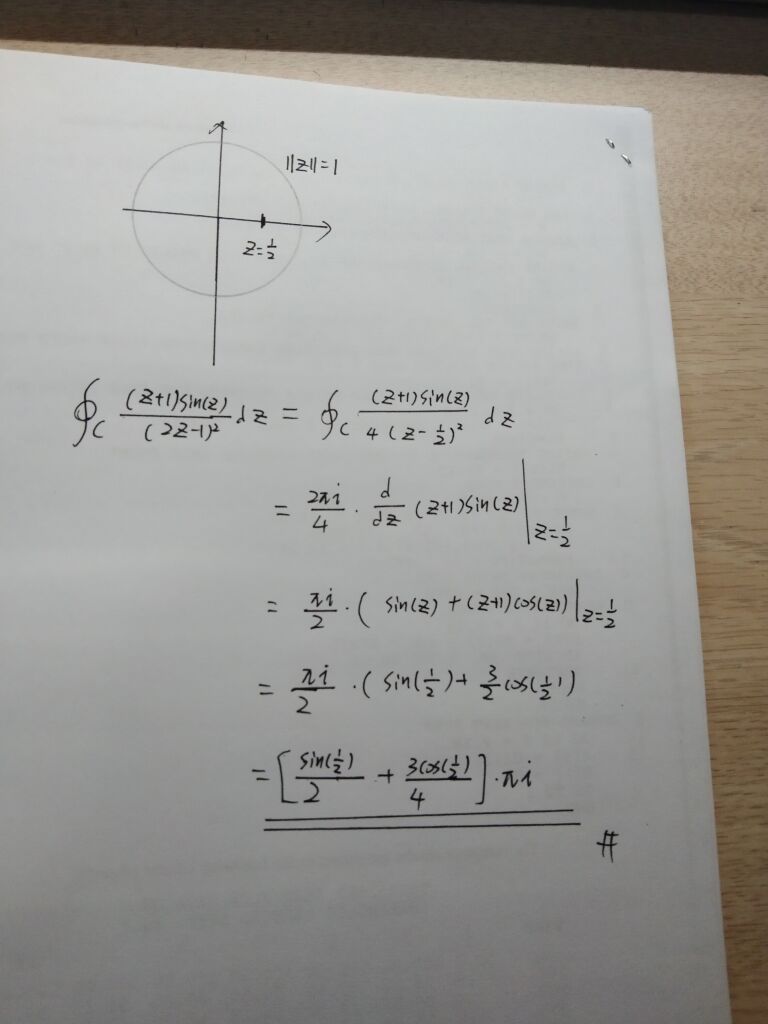 ||z||=1
z=1/2
∮_C (z+1)sin(z)/(2z-1)² dz = ∮_C (z+1)sin(z)/4(z-1/2)² dz
= 2πi/4 · d/dz (z+1)sin(z)|_z=1/2
= πi/2 · ( sin(z) + (z+1)cos(z))|_z=1/2
= πi/2 · ( sin(1/2) + 3/2 cos(1/2))
= [sin(1/2)/2 + 3cos(1/2)/4] · πi
#